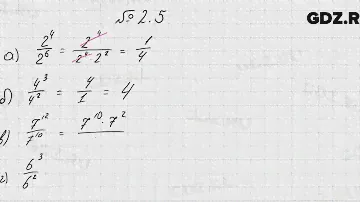 GDZ.R
№ 2.5
а) 2⁴/2⁶ = 2⁴/2⁴·2² = 1/4
б) 4³/4² = 4/1 = 4
в) 7¹²/7¹⁰ = 7¹⁰·7²
г) 6³/6²